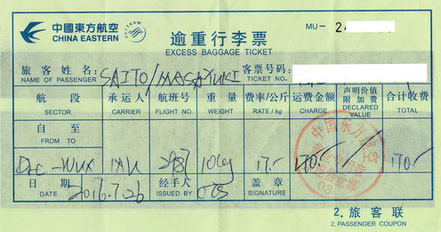 中國東方航空 CHINA EASTERN SKYTEAM 逾重行李票 MU- 2
EXCESS BAGGAGE TICKET
旅客姓名: SAITO/MASAYUKI 客票号码:
NAME OF PASSENGER TICKET NO.
航段 承运人 航班号 重量 费率/公斤 运费金额 声明价值附加费 合计收费
SECTOR CARRIER FLIGHT NO. WEIGHT RATE / kg CHARGE DECLARED VALUE TOTAL
自 至
FROM TO
MU 2987 10kg 17.- 170.- 170.-
日期 2016.7.26 经手人 盖章
DATE ISSUED BY SIGNATURE
中国东方航空
03
2. 旅客联
2. PASSENGER COUPON